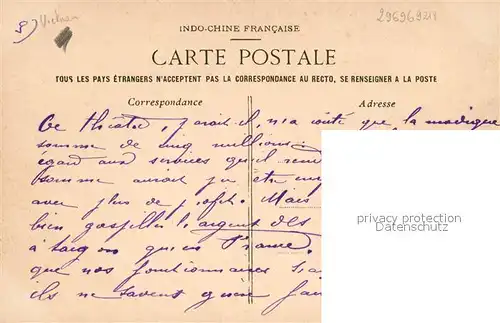 8) Vietnam
29696921
INDO-CHINE FRANÇAISE
CARTE POSTALE
TOUS LES PAYS ÉTRANGERS N'ACCEPTENT PAS LA CORRESPONDANCE AU RECTO, SE RENSEIGNER A LA POSTE
Correspondance
Adresse
Ce théâtre, paraît-il, n'a coûté que la modique
somme de cinq millions
égard aux services qu'il
somme aurait pu être
avec plus de profit. Mais
bien gaspiller l'argent des
à Saïgon qu'en France.
que nos fonctionnaires
ils ne savent guère
privacy protection
Datenschutz